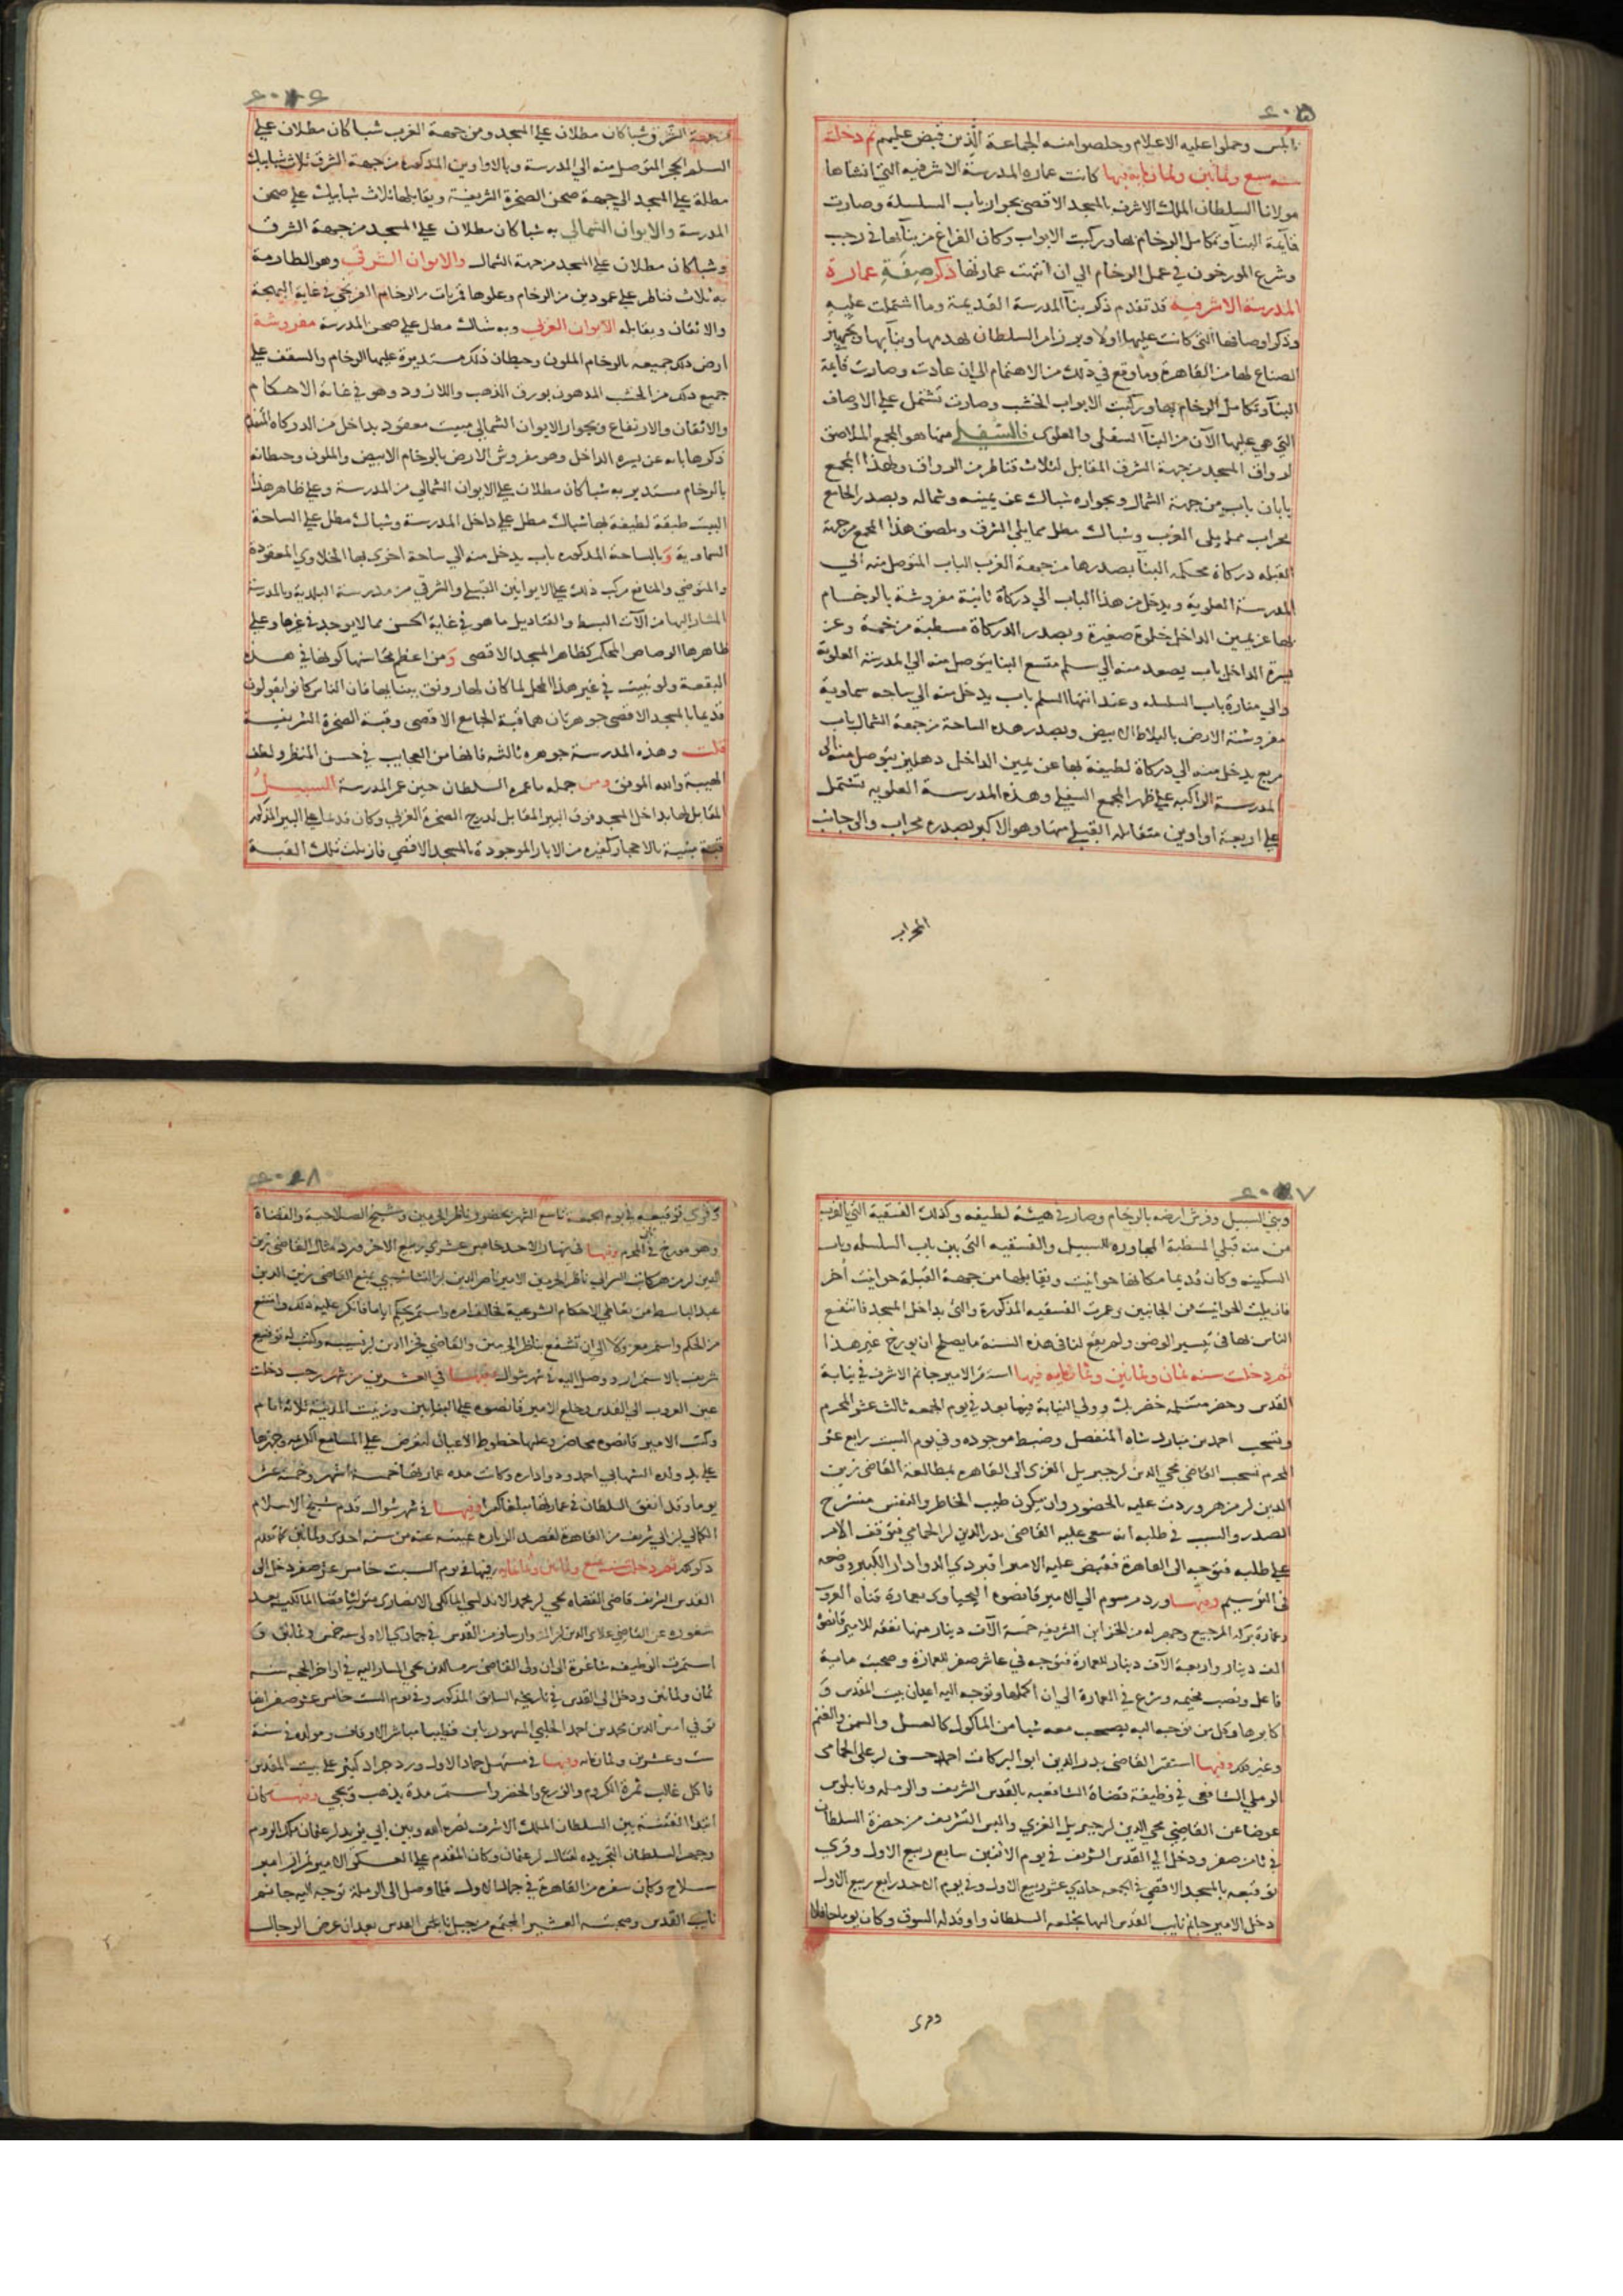 نابلس وحملوا عليه الاعلام وخلصوا منه الجماعة الذين قبض عليهم ثم دخلت
سنه سبع وثمانين وثمانمايه فيها كانت عماره المدرسة الاشرفيه التي انشاها
مولانا السلطان الملك الاشرف بالمسجد الاقصى بجوار باب السلسلة وصارت
قايمة البنآ وتكامل الرخام بها وركبت الابواب وكان الفراغ من بنآيها في رجب
وشرع المورخون في عمل الرخام الي ان انتهت عمارتها ذكر صفة عمارة
المدرسة الاشرفيه قد تقدم ذكر بنآ المدرسة القديمة وما اشتملت عليه
وذكر اوصافها التي كانت عليها اولا وبروز امر السلطان بهدمها وبنآيها وتجهيز
الصناع لها من القاهرة وما وقع في ذلك من الاهتمام الي ان عادت وصارت قايمة
البنآ وتكامل الرخام بها وركبت الابواب الخشب وصارت تشتمل علي الاوصاف
التي هي عليها الآن من البنآ السفلي والعلوي فالسفلي منها هو المجمع الملاصق
لرواق المسجد من جهة الشرق المقابل لثلاث قناطر من الرواق ولهذا المجمع
بابان باب من جهة الشمال وبجواره شباك عن يمينه وشماله وبصدر الجامع
محراب مما يلي الغرب وشباك مطل مما يلي الشرق ويلصق هذا المجمع من جهة
القبله دركاة محكمة البنآ بصدرها من جهة الغرب الباب المتوصل منه الي
المدرسة العلوية ويدخل من هذا الباب الي دركاة ثانية مفروشة بالرخام
بها عن يمين الداخل خلوة صغيرة وبصدر الدركاة مسطبة مرخمة وعن
يسرة الداخل باب يصعد منه الي سلم متسع البنا يتوصل منه الي المدرسة العلوية
والي منارة باب السلسله وعند انتها السلم باب يدخل منه الي ساحه سماوية
مفروشة الارض بالبلاط الابيض وبصدر هذه الساحة من جهة الشمال باب
مربع يدخل منه الي دركاة لطيفة بها عن يمين الداخل دهليز يتوصل منه الي
المدرسة الراكبه علي ظهر المجمع السفلي وهذه المدرسة العلويه تشتمل
علي اربعة اواوين متقابله القبلي منها وهو الاكبر بصدره محراب والي جانب
المحراب
من جهة الشرق شباكان مطلان علي المسجد ومن جهة الغرب شباكان مطلان علي
السلم الحجر المتوصل منه الي المدرسة وبالاواوين المذكورة من جهة الشرق ثلاث شبابيك
مطلة علي المسجد الي جهة صحن الصخرة الشريفة ويقابلها ثلاث شبابيك علي صحن
المدرسة والايوان الشمالي به شباكان مطلان علي المسجد من جهة الشرق
وشباكان مطلان علي المسجد من جهة الشمال والايوان الشرقي وهو الطارمة
به ثلاث قناطر علي عمودين من الرخام وعلوها قمريات من الرخام الفرنجي في غاية البهجة
والاتقان ويقابله الايوان الغربي وبه شباك مطل علي صحن المدرسة مفروشة
ارض ذلك جميعه بالرخام الملون وحيطان ذلك مستديرة عليها الرخام والسقف علي
جميع ذلك من الخشب المدهون بورق الذهب واللازورد وهو في غاية الاحكام
والاتقان والارتفاع وبجوار الايوان الشمالي مبيت معقود بداخل من الدركاة المتقدم
ذكرها بابه عن يسرة الداخل وهو مفروش الارض بالرخام الابيض والملون وحيطانه
بالرخام مستدير به شباكان مطلان علي الايوان الشمالي من المدرسة وعلي ظاهر هذا
البيت طبقة لطيفة بها شباك مطل علي داخل المدرسة وشباك مطل علي الساحة
السماوية وبالساحة المذكوره باب يدخل منه الي ساحة اخرى بها الخلاوي المعقودة
والمتوضي والمنافع مركب ذلك علي الايوانين القبلي والشرقي من مدرسة البلدية وبالمدرسة
المشار اليها من الآت البسط والقناديل ما هو في غاية الحسن مما لا يوجد في غيرها وعلي
ظاهرها الرصاص المحكم كظاهر المسجد الاقصى ومن اعظم محاسنها كونها في هذه
البقعة ولو بنيت في غير هذا المحل لما كان لها رونق ببنايها فان الناس كانوا يقولون
قديما بالمسجد الاقصى جوهرتان هما قبة الجامع الاقصى وقبة الصخرة الشريفة
قلت وهذه المدرسة جوهره ثالثه فانها من العجايب في حسن المنظر ولطف
الهيبة والله الموفق ومن جمله ما عمره السلطان حين عمر المدرسة السبيل
المقابل لها بداخل المسجد فوق البير المقابل لدرج الصخرة الغربي وكان قديما علي البير المذكور
قبة مبنية بالاحجار كغيره من الابار الموجودة بالمسجد الاقصى فازيلت تلك القبة
وبني السبيل وفرش ارضه بالرخام وصار في هيئة لطيفه وكذلك الفسقية التي بالقرب
من منه قبلي المسطبة المجاوره للسبيل والفسقيه التي بين باب السلسله وباب
السكينه وكان قديما مكانها حوانيت ويقابلها من جهة القبلة حوانيت أخر
فازيلت الحوانيت من الجانبين وعمرت الفسقيه المذكورة والتي بداخل المسجد فانتفع
الناس بها في تيسير الوضو ولم يقع لنا في هذه السنة ما يصلح ان يورخ غير هذا
ثم دخلت سنه ثمان وثمانين وثمانمايه فيها استقر الامير جانم الاشرفي في نيابة
القدس وحضر متسلمه خضر بك وولي النيابة فيها بعد في يوم الجمعه ثالث عشر المحرم
وتسحب احمد بن مبارك شاه المنفصل وضبط موجوده وفي يوم السبت رابع عشر
المحرم تسحب القاضي محي الدين ابن جبريل الغزي الى القاهره بمطالعة القاضي زين
الدين ابن مزهر وردت عليه بالحضور وان يكون طيب الخاطر والنفس منشرح
الصدر والسبب في طلبه انه سعى عليه القاضى بدر الدين ابن الحمامي فتوقف الامر
علي طلبه فتوجه الى القاهرة فقبض عليه الامير اقبردي الدوادار الكبير ووضعه
في الترسيم وفيها ورد مرسوم الي الامير قانصوه اليحياوي بعمارة قناه العروب
وعمارة بركه المرجيع وجهز له من الخزاين الشريفه خمسة الآف دينار منها نفقه للامير قانصوه
الف دينار واربعة الآف دينار للعمارة فتوجه في عاشر صفر للعمارة وصحبته ماية
فاعل ونصب مخيمه وشرع في العمارة الى ان اكملها وتوجه اليه اعيان بيت المقدس و
كابرها وكل من توجه اليه يصحب معه شيا من الماكول كالعسل والسمن والغنم
وغير ذلك وفيها استقر القاضى بدر الدين ابو البركات احمد حسن ابن علي الحمامى
الرملي الشافعي في وظيفة قضاة الشافعيه بالقدس الشريف والرمله ونابلوس
عوضا عن القاضي محي الدين ابن جبريل الغزي والبس التشريف من حضرة السلطان
في ثامن صفر ودخل الي القدس الشريف في يوم الاثنين سابع ربيع الاول وقري
توقيعه بالمسجد الاقصي في الجمعه حادي عشر ربيع الاول وفي يوم الاحد رابع ربيع الاول
دخل الامير جانم نايب القدس اليها بخلعه السلطان واوقد له السوق وكان يوما حافلا
وقرى
وقري توقيعه في يوم الجمعه تاسع الشهر بحضور ناظر الحرمين وشيخ الصلاحية والقضاة
وهو مورخ في المحرم وفيها في نهار الاحد خامس عشري ربيع الاخر ورد مثال القاضي زين
الدين ابن مزهر كاتب السر الي ناظر الحرمين الامير ناصر الدين ابن النشاشيبي بمنع القاضى زين الدين
عبد الباسط من تعاطي الاحكام الشرعية فخالف امره واستمر يحكم اياما فانكر عليه ذلك وامتنع
من الحكم واستمر معزولا الى ان تشفع بناظر الحرمين والقاضي فخر الدين ابن نسيبه وكتب له توقيع
شريف بالاستمرار ووصل اليه في شهر شوال وفيها في العشرين من شهر رجب دخلت
عين العروب الى القدس وخلع الامير قانصوه علي البنايين وزينت المدينة ثلاثة ايام
وكتب الامير قانصوه محاضر وعليها خطوط الاعيان لتعرض علي المسامع الكريمه وجهزها
علي يد ولده الشهابي احمد ودواداره وكانت مده عمارتها خمسة اشهر وخمسه عشر
يوما وقد انفق السلطان في عمارتها مبلغا كبيرا وفيها في شهر شوال قدم شيخ الاسلام
الكمالي ابن ابي شريف من القاهرة لقصد الزيارة غيبته عنه من سنه احدى وثمانين كما تقدم
ذكره ثم دخلت سنه تسع وثمانين وثمانمايه فيها في يوم السبت خامس عشر صفر دخل الى
القدس الشريف قاضي القضاه محي ابن محمد الاندلسي المالكي الانصاري متوليا قضا المالكيه بعد
شغوره عن القاضي علاي الدين ابن المزوار سافر من القدس في جمادى الاولى سنه خمس وثمانين و
استمرت الوظيفه شاغرة الى ان ولي القاضى شمس الدين محي المشار اليه في اواخر الحجه سنه
ثمان وثمانين ودخل الى القدس في تاريخه السابق المذكور وفي يوم السبت خامس عشر صفر ايضا
توفي امين الدين محمد بن احمد الحلبي المشهور بابن قطيبا مباشر الاوقاف ومولده في سنة
ست وعشرين وثمانمايه وفيها في مستهل جماد الاول ورد جراد كثير علي بيت المقدس
فاكل غالب ثمرة الكروم والزرع والخضر واستمر مدة يذهب ويجي وفيها كان
ابتدا الفتنة بين السلطان الملك الاشرف نصره الله وبين ابي يزيد ابن عثمان ملك الروم
وجهز السلطان التجريده لقتال ابن عثمان وكان المقدم علي العسكر الامير تمراز امير
سلاح وكان سفره من القاهرة في جماد الاول فلما وصل الى الرملة توجه اليه جانم
نايب القدس وصحبته العشير المجتمع من جبل نابلس القدس بعد ان عرض الرجال